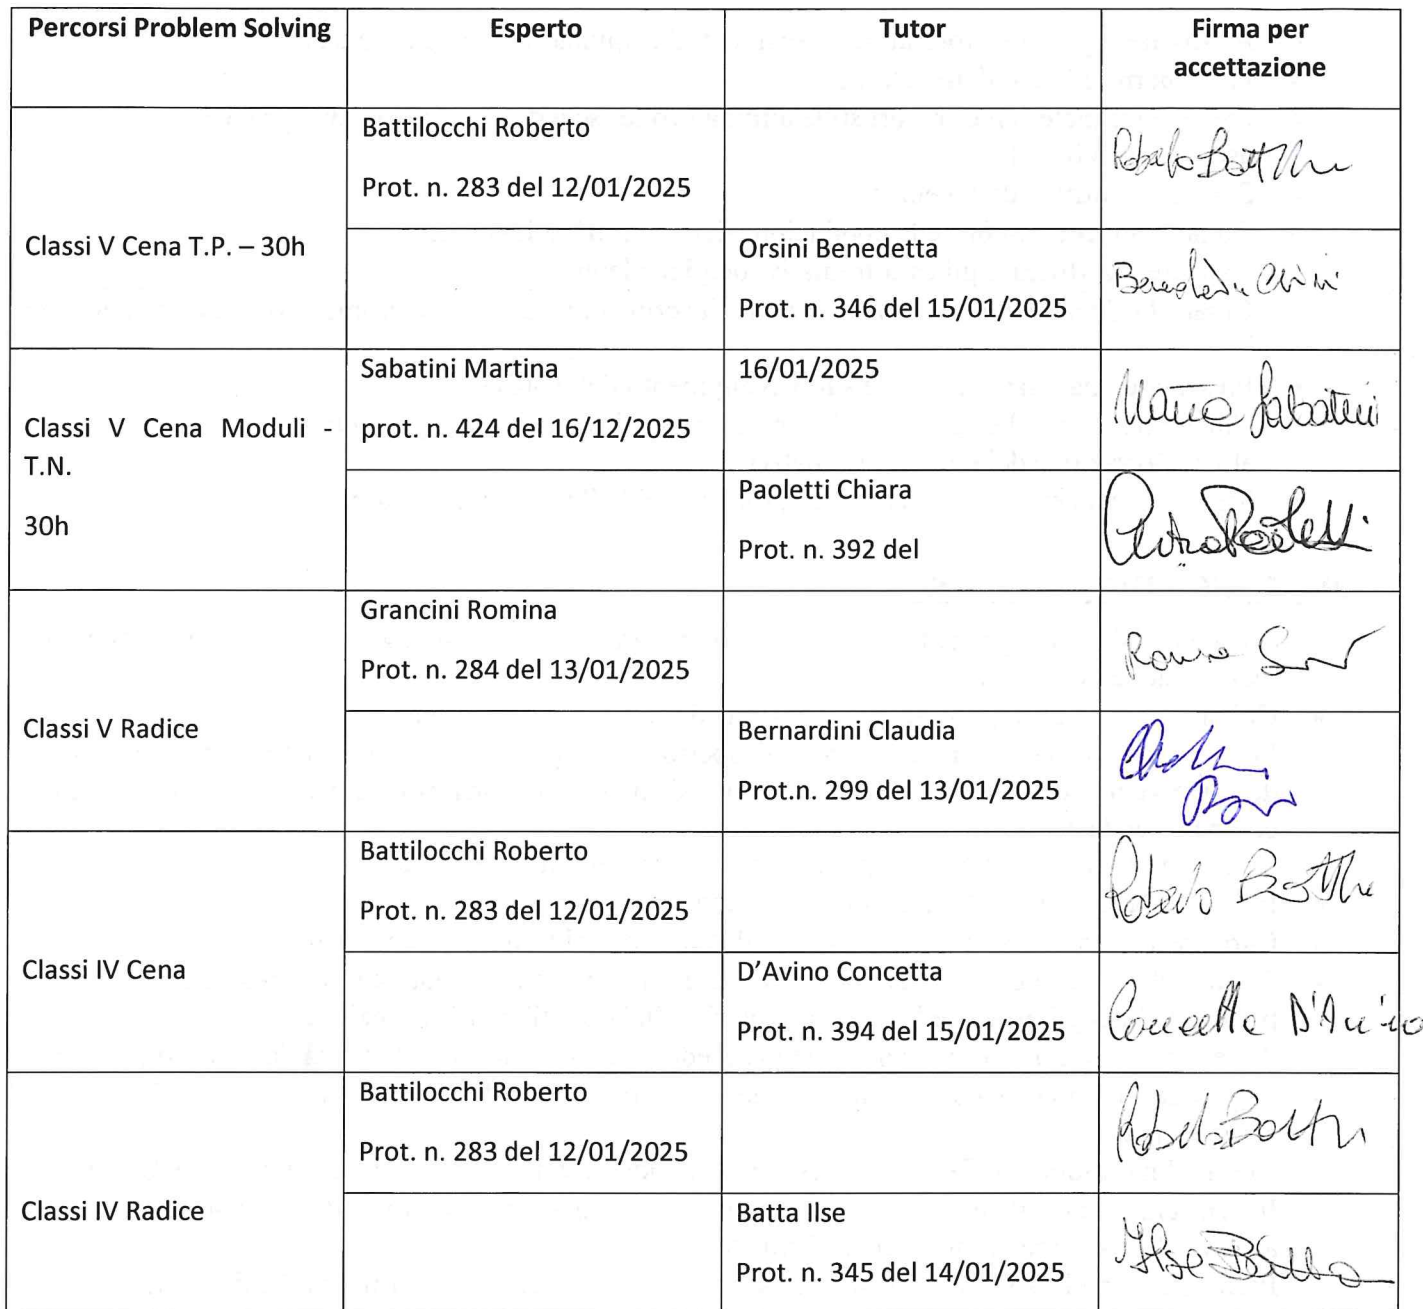 Percorsi Problem Solving
Esperto
Tutor
Firma per
accettazione
Classi V Cena T.P. – 30h
Battilocchi Roberto
Prot. n. 283 del 12/01/2025
Roberto
Orsini Benedetta
Prot. n. 346 del 15/01/2025
Classi V Cena Moduli -
T.N.
30h
Sabatini Martina
prot. n. 424 del 16/12/2025
16/01/2025
Sabatini
Paoletti Chiara
Prot. n. 392 del
Chiara Paoletti
Classi V Radice
Grancini Romina
Prot. n. 284 del 13/01/2025
Bernardini Claudia
Prot.n. 299 del 13/01/2025
Classi IV Cena
Battilocchi Roberto
Prot. n. 283 del 12/01/2025
Roberto
D’Avino Concetta
Prot. n. 394 del 15/01/2025
Concetta D'Avino
Classi IV Radice
Battilocchi Roberto
Prot. n. 283 del 12/01/2025
Batta Ilse
Prot. n. 345 del 14/01/2025
Ilse Batta